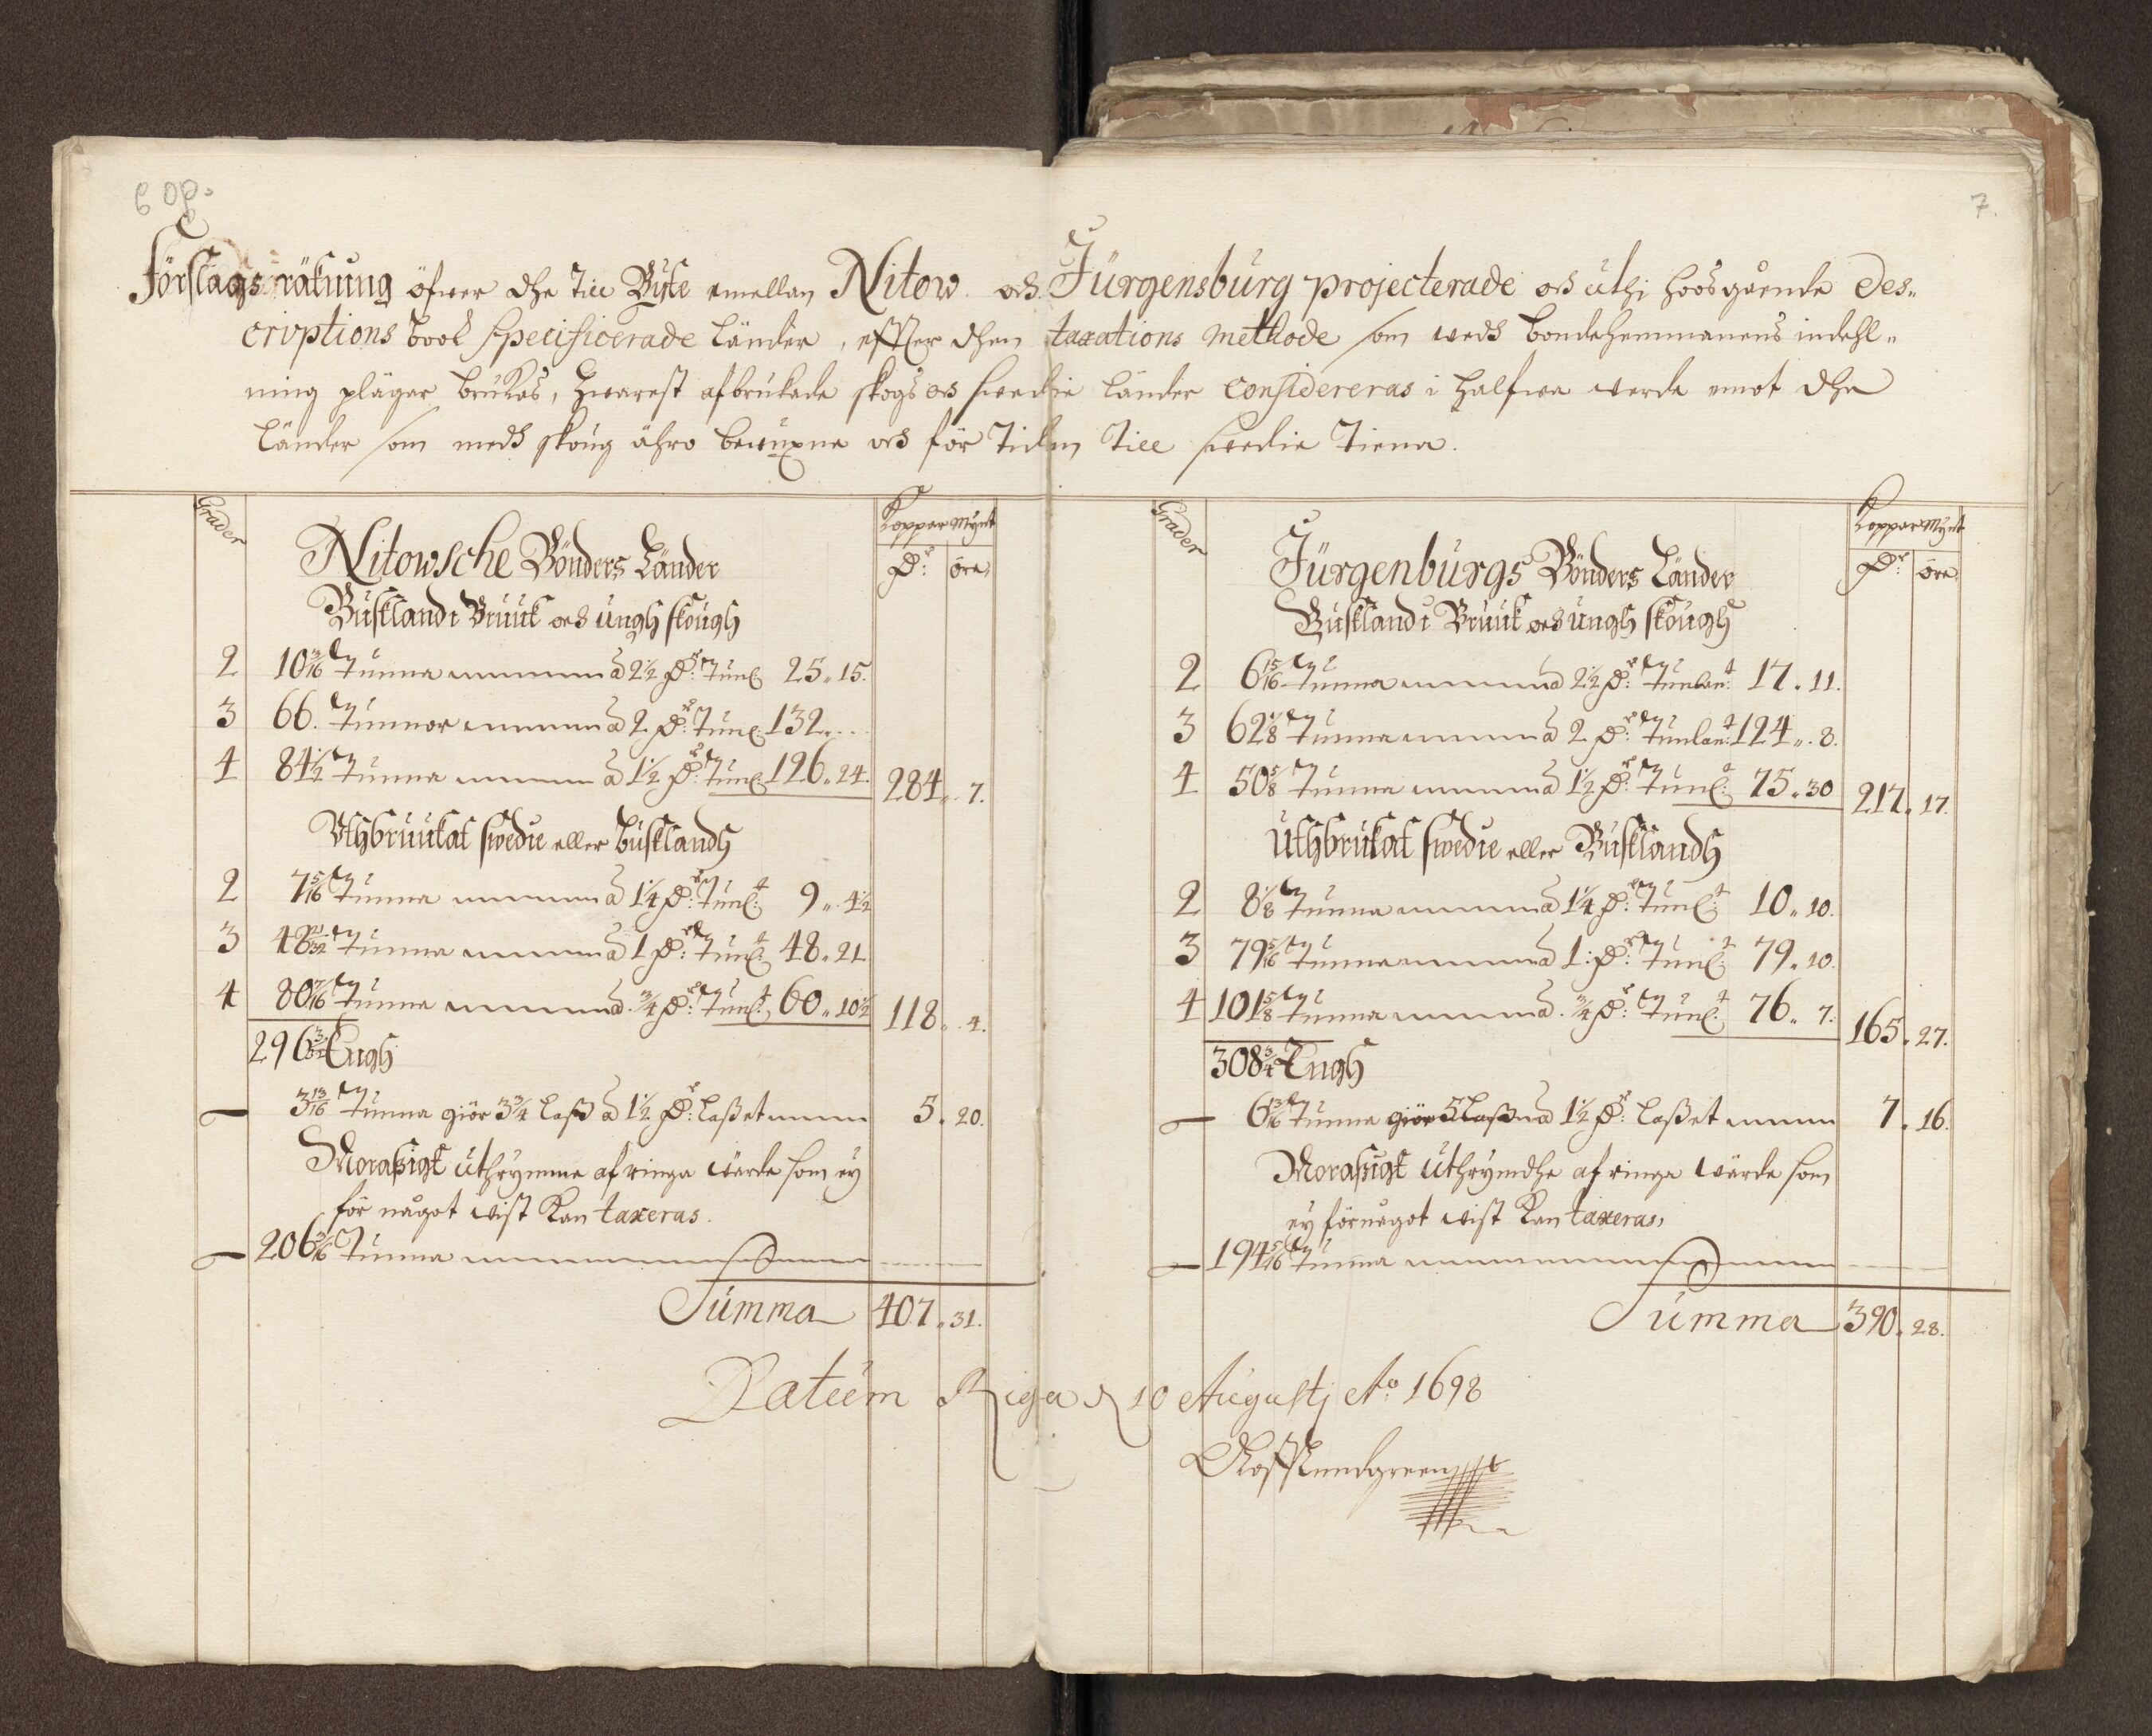 6 op.
7.
Förslagsräkning öfwer dhe till Byte emellan Nitow och Jürgensburg projecterade och uthi hoosgående Des-
criptions book specificerade länder, effter dhen taxations methode som wedh bondehemmanens indehl-
ning plägar brukas, hwarest afbrukade skogs och swedie länder considereras i halfwa werde emot dhe
länder som medh skoug ähro bewuxne och för tiden till swedie tiena.
Grader
Koppar Mynt
Nitowsche Bönders Länder
Dr: öre
Buskland i Bruuk och ungh skough
2 10 3/16 Tunna à 2 1/2 Dr: Tunl: 25 „ 15.
3 66. Tunnor à 2 Dr: Tunl: 132 „ ...
4 84 1/2 Tunna à 1 1/2 Dr: Tunl: 126 „ 24. 284 „ 7.
Uthbruukat swedie eller busklandh
2 7 5/16 Tunna à 1 1/4 Dr: Tunl: 9 „ 4 1/2
3 48 21/32 Tunna à 1 Dr: Tunl: 48 „ 21
4 80 7/16 Tunna à 3/4 Dr: Tunl: 60 „ 10 1/2 118 „ 4.
296 3/32 Engh
3 13/16 Tunna giör 3 3/4 laß à 1 1/2 Dr: laßet 5 „ 20.
Moraßigt uthrymme af ringa wärde som ey
för något wist kan taxeras.
206 3/16 Tunna
Summa 407 „ 31.
Grader
Koppar Mynt
Jürgenburgs Bönders Länder
Dr: öre
Buskland i Bruuk och ungh skough
2 6 15/16 Tunna à 2 1/2 Dr: Tunlan: 17 „ 11.
3 62 1/8 Tunna à 2 Dr: Tunlan: 124 „ 8.
4 50 5/8 Tunna à 1 1/2 Dr: Tunl: 75 „ 30 217 „ 17.
Uthbrukat swedie eller Busklandh
2 8 1/8 Tunna à 1 1/4 Dr: Tunl: 10 „ 10.
3 79 5/16 Tunna à 1: Dr: Tunl: 79 „ 10.
4 101 5/8 Tunna à 3/4 Dr: Tunl: 76 „ 7. 165 „ 27.
308 3/4 Engh
6 13/16 Tunna giör 5 laß à 1 1/2 Dr: laßet 7 „ 16.
Moraßigt uthrymdhe af ringa wärde som
ey för något wist kan taxeras,
194 5/16 Tunna
Summa 390 „ 28.
Datum Riga d 10 Augustj Ao 1698
Oloff Lundgreen